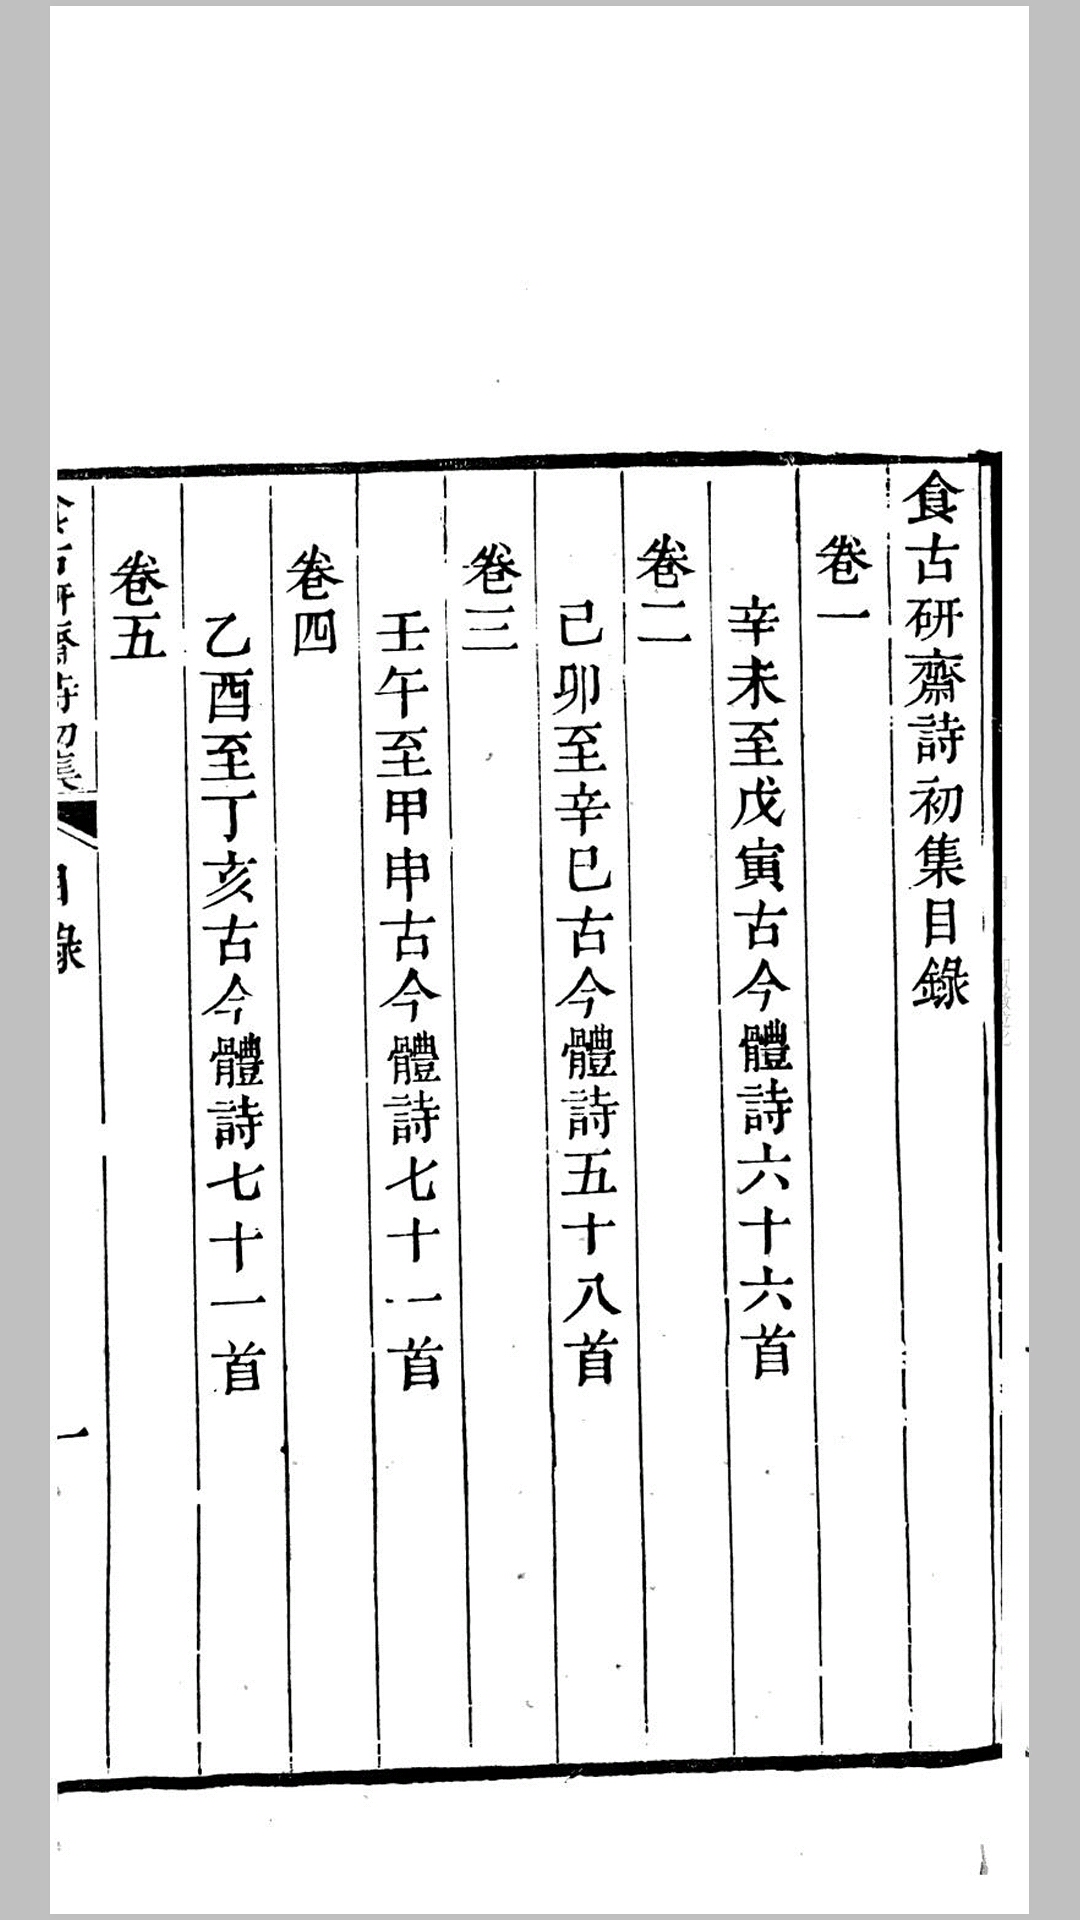 食古研齋詩初集目錄
卷一
辛未至戊寅古今體詩六十六首
卷二
己卯至辛巳古今體詩五十八首
卷三
壬午至甲申古今體詩七十一首
卷四
乙酉至丁亥古今體詩七十一首
卷五
食古研齋詩初集 目錄 一